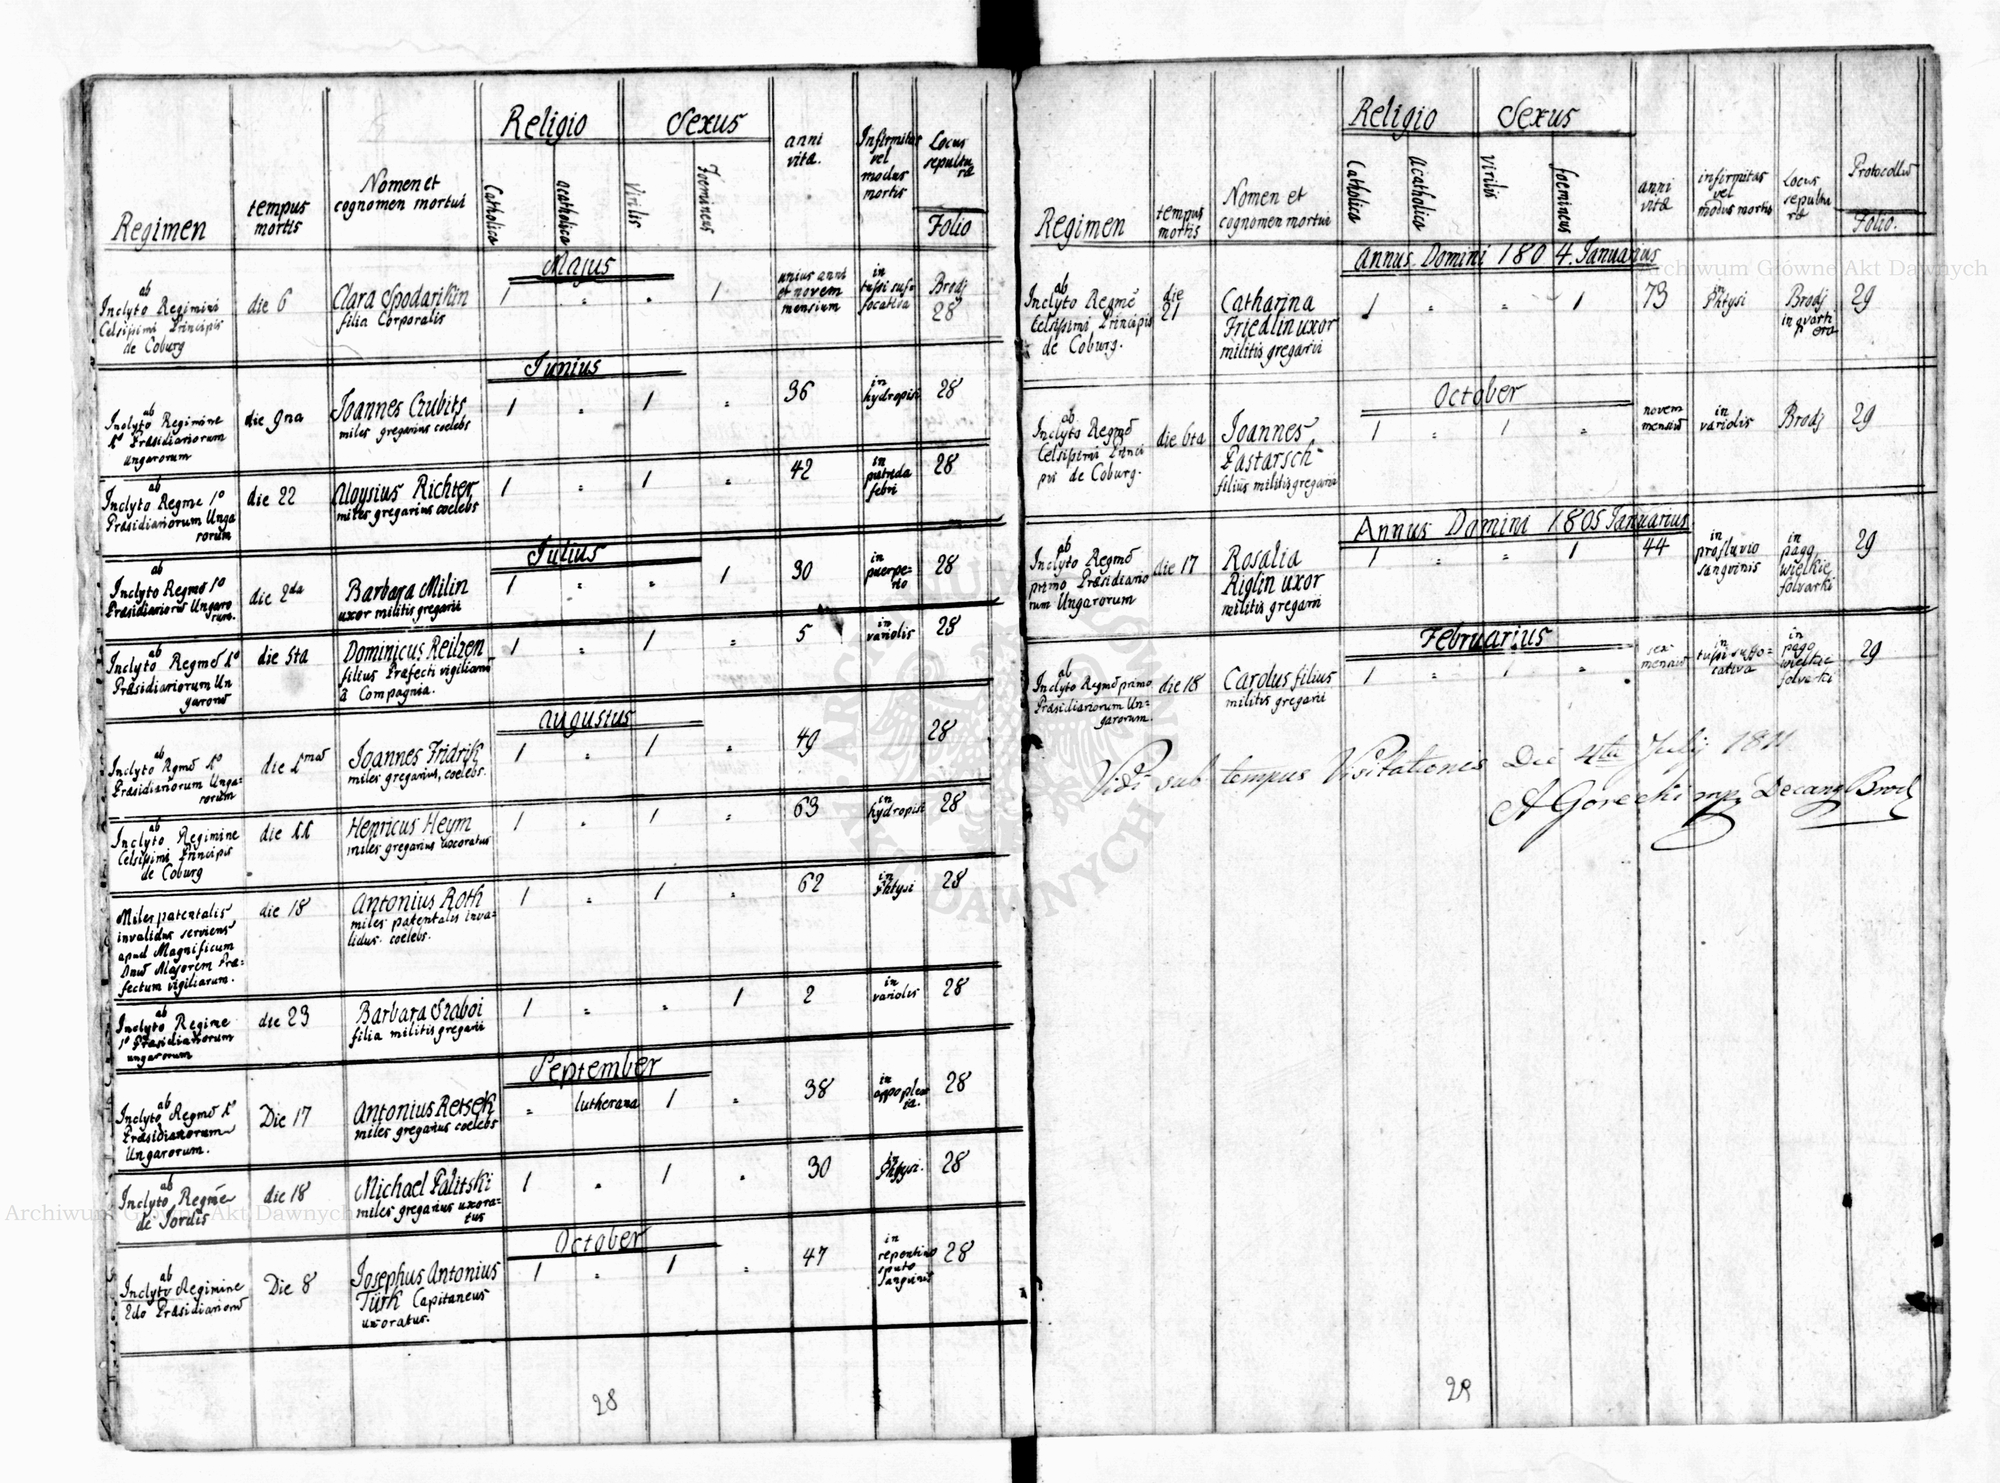 Religio Sexus
Regimen
tempus mortis
Nomen et cognomen mortui
Catholica
acatholica
virilis
Foemineus
anni vitæ.
Infirmitas vel modus mortis
Locus sepulturæ
Folio
Majus
ab Inclyto Regimini Celsissimi Principis de Coburg
die 6
Clara Spodarikin
filia Corporalis
1 " " 1
unius anni et novem mensium
in tussi suffocativa
Brodj
28
Junius
ab Inclyto Regimine 1o Præsidiariorum Ungarorum
die 9na
Joannes Czubits
miles gregarius coelebs
1 " 1 "
36
in hydropisi
28
ab Inclyto Regme 1o Præsidiariorum Ungarorum
die 22
Aloysius Richter
miles gregarius coelebs
1 " 1 "
42
in putrida febri
28
Julius
ab Inclyto Regmē 1o Præsidiariorū Ungarorum.
die 2da
Barbara Milin
uxor militis gregarii
1 " " 1
30
in puerperio
28
ab Inclyto Regmē 1o Præsidiariorum Ungarorū
die 5ta
Dominicus Reilzen
filius Præfecti vigiliarū
à Compagnia.
1 " 1 "
5
in variolis
28
Augustus
ab Inclyto Rgmē 1o Præsidiariorum Ungarorum
die 1ma
Joannes Fridrik
miles gregarius, coelebs.
1 " 1 "
49
28
ab Inclyto Regimine Celsissimi Principis de Coburg
die 11
Henricus Heym
miles gregarius uxoratus
1 " 1 "
63
in hydropisi
28
Miles patentalis invalidus serviens apud Magnificum Dnum Majorem Præfectum vigiliarum.
die 18
Antonius Roth
miles patentalis invalidus coelebs.
1 " 1 "
62
in Phtysi
28
ab Inclyto Regime 1o Præsidiariorum ungarorum
die 23
Barbara Szaboi
filia militis gregarii
1 " " 1
2
in variolis
28
September
ab Inclyto Regmē 1o Præsidiariorum Ungarorum.
Die 17
Antonius Retsek
miles gregarius coelebs
" lutherana 1 "
38
in appoplexia.
28
ab Inclyto Regme de Jordis
die 18
Michael Palitski
miles gregarius uxoratus
1 " 1 "
30
in Phtysi.
28
October
ab Inclyto Regimine 2do Præsidiariorū
Die 8
Josephus Antonius
Türk Capitaneus
uxoratus.
1 " 1 "
47
in repentino sputo sanguinis
28
28
Religio Sexus
Regimen
tempus mortis
Nomen et cognomen mortui
Catholica
Acatholica
virilis
foemineus
anni vitæ
infirmitas vel modus mortis
Locus sepulturæ
Protocollū
Folio.
Annus Domini 1804. Januarius
ab Inclyto Regmē Celsissimi Principis de Coburg.
die 21
Catharina
Friedlin uxor
militis gregarii
1 " " 1
73
in Phtysi
Brodj
29
October
ab Inclyto Regmē Celsissimi Principis de Coburg.
die 6ta
Joannes
Pastarsch
filius militis gregarii
1 " 1 "
novem mensiū
in variolis
Brodj
29
Annus Domini 1805 Januarius
ab Inclyto Regmē primo Præsidiariorum Ungarorum
die 17
Rosalia
Riglin uxor
militis gregarii
1 " " 1
44
in profluvio sanguinis
in pago wielkie folvarki
29
Februarius
ab Inclyto Regmē primo Præsidiariorum Ungarorum.
die 18
Carolus filius
militis gregarii
1 " 1 "
sex mensiū
in tussi suffocativa
in pago wielkie folvarki
29
Vidi sub tempus Visitationis Die 4ta Julij 1811
A Gorecki mp Decanz Brod
29
Archiwum Główne Akt Dawnych
Archiwum Główne Akt Dawnych